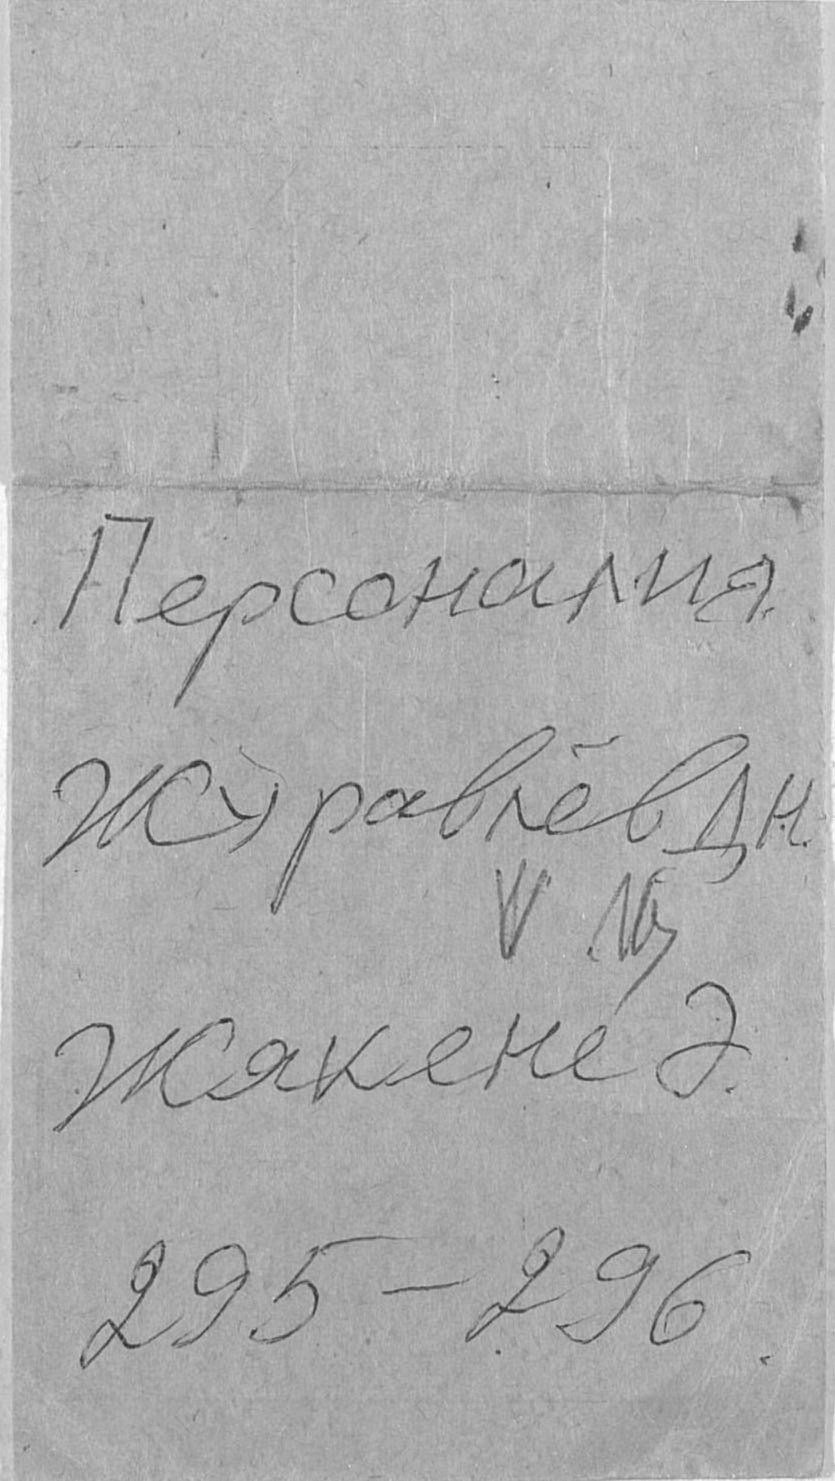 Персоналия
Журавлёв Д Н.
V
Жякене Э.
295 – 296.